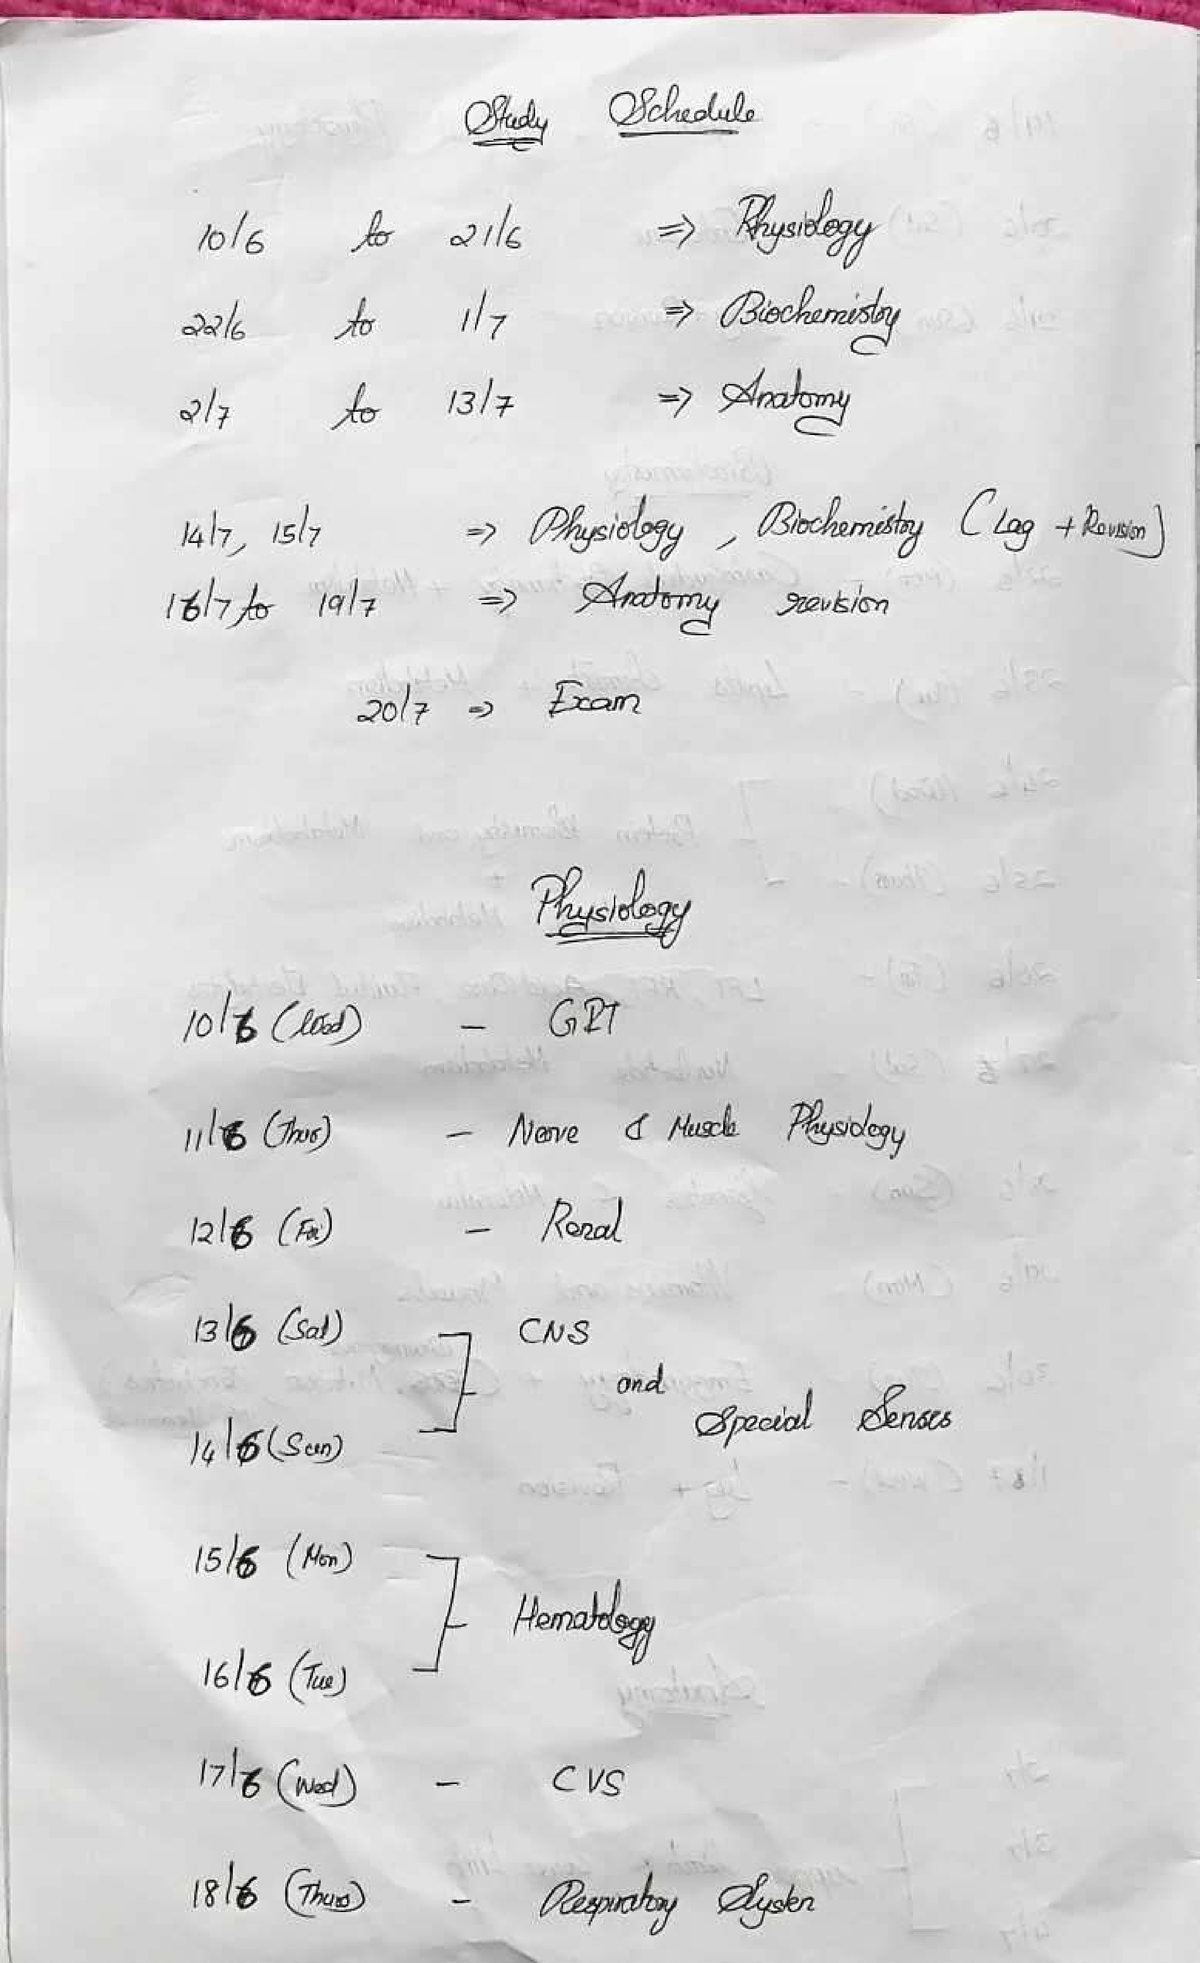 Study Schedule
10/6 to 21/6 => Physiology
22/6 to 1/7 => Biochemistry
2/7 to 13/7 => Anatomy
14/7, 15/7 => Physiology, Biochemistry (Lag + Revision)
16/7 to 19/7 => Anatomy revision
20/7 => Exam
Physiology
10/6 (Wed) - GIT
11/6 (Thur) - Nerve & Muscle Physiology
12/6 (Fri) - Renal
13/6 (Sat) CNS
and
Special Senses
14/6 (Sun)
15/6 (Mon)
Hematology
16/6 (Tue)
17/6 (Wed) - CVS
18/6 (Thurs) - Respiratory System